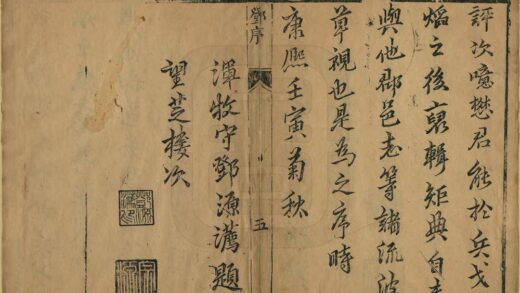 評次噫懋君能於兵戈
之後裒輯矩典自
與他郡邑志等諸流波
草視也是為之序時
康熈壬寅菊秋
鄧序
五
潭牧守鄧源題
望芝樓次